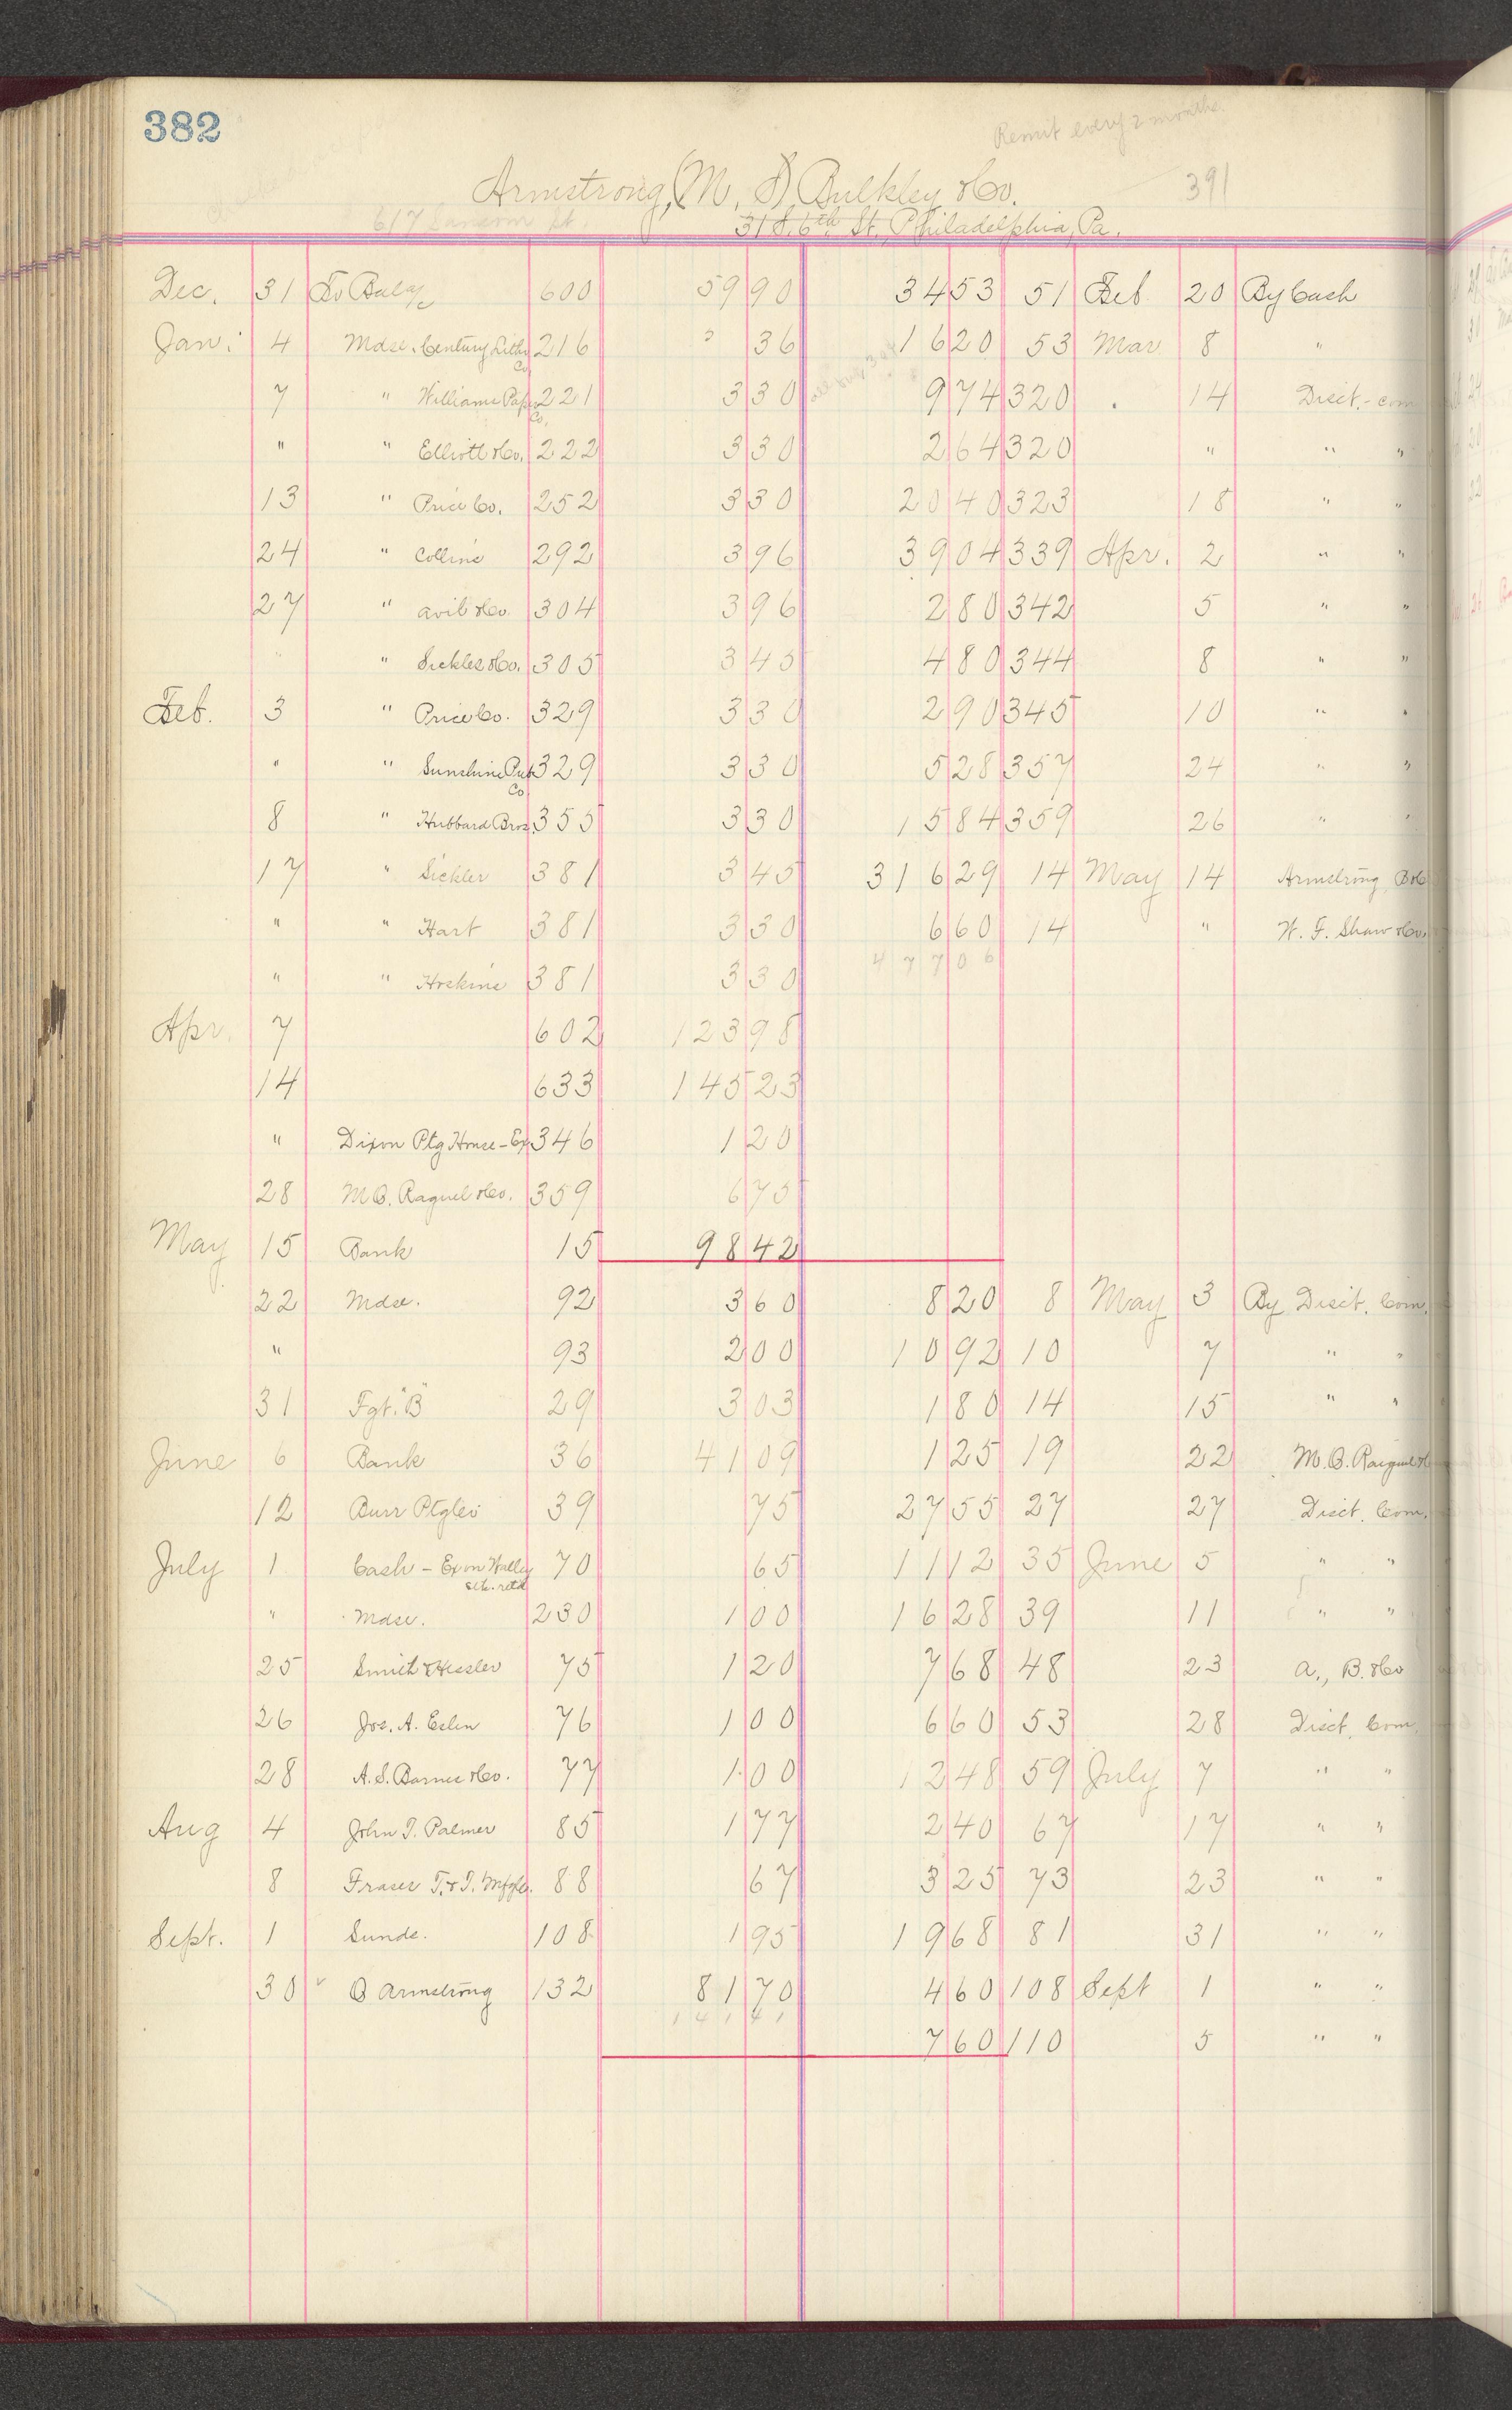 382
Remit every 2 months.
Armstrong, (M. D) Bulkley &Co. 391
617 Sansom St. 31 S. 6th St. Philadelphia, Pa.
Dec. 31 To Balc 600 59 90 34 53 51 Feb 20 By Cash
Jan. 4 Mdse. Century Litho Co 216 36 16 20 53 Mar 8 "
7 " Williams Paper Co. 221 3 30 9 74 320 14 Disct. - com
" " Elliott &Co. 222 3 30 2 64 320 " " "
13 " Price Co. 252 3 30 20 40 323 18 " "
24 " Collins 292 3 96 39 04 339 Apr. 2 " "
27 " Avil &Co. 304 3 96 2 80 342 5 " "
" " Sickles &Co. 305 3 45 4 80 344 8 " "
Feb. 3 " Price Co. 329 3 30 2 90 345 10 " "
" " Sunshine Pub Co. 329 3 30 5 28 357 24 " "
8 " Hubbard Bros. 355 3 30 15 84 359 26 " "
17 " Sickler 381 3 45 316 29 14 May 14 Armstrong, B &C
" " Hart 381 3 30 6 60 14 " W. F. Shaw &Co.
477 06
" " Hoskins 381 3 30
Apr. 7 602 123 98
14 633 145 23
" Dixon Ptg House - Ex 346 1 20
28 M.B. Raguel &Co. 359 6 75
May 15 Bank 15 98 42
22 Mdse. 92 3 60 8 20 8 May 3 By Disct. Com.
" 93 2 00 10 92 10 7 " "
31 Fgt. "B" 29 3 03 1 80 14 15 " "
June 6 Bank 36 41 09 1 25 19 22 M. B. Raiguel &
12 Burr Ptg Co 39 75 27 55 27 27 Disct. Com.
July 1 Cash - Ex on Halley 70 65 11 12 35 June 5 " "
" Mdse. 230 1 00 16 28 39 11 " "
25 Smith & Hessler 75 1 20 7 68 48 23 A., B. &Co
26 Jos. A. Eslen 76 1 00 6 60 53 28 Disct. Com.
28 A. S. Barnes &Co. 77 1 00 12 48 59 July 7 " "
Aug 4 John T. Palmer 85 1 77 2 40 67 17 " "
8 Fraser T. & T. Mfg Co. 88 67 3 25 73 23 " "
Sept. 1 Sunds. 108 1 95 19 68 81 31 " "
30 B Armstrong 132 81 70 4 60 108 Sept 1 " "
141 41
7 60 110 5 " "